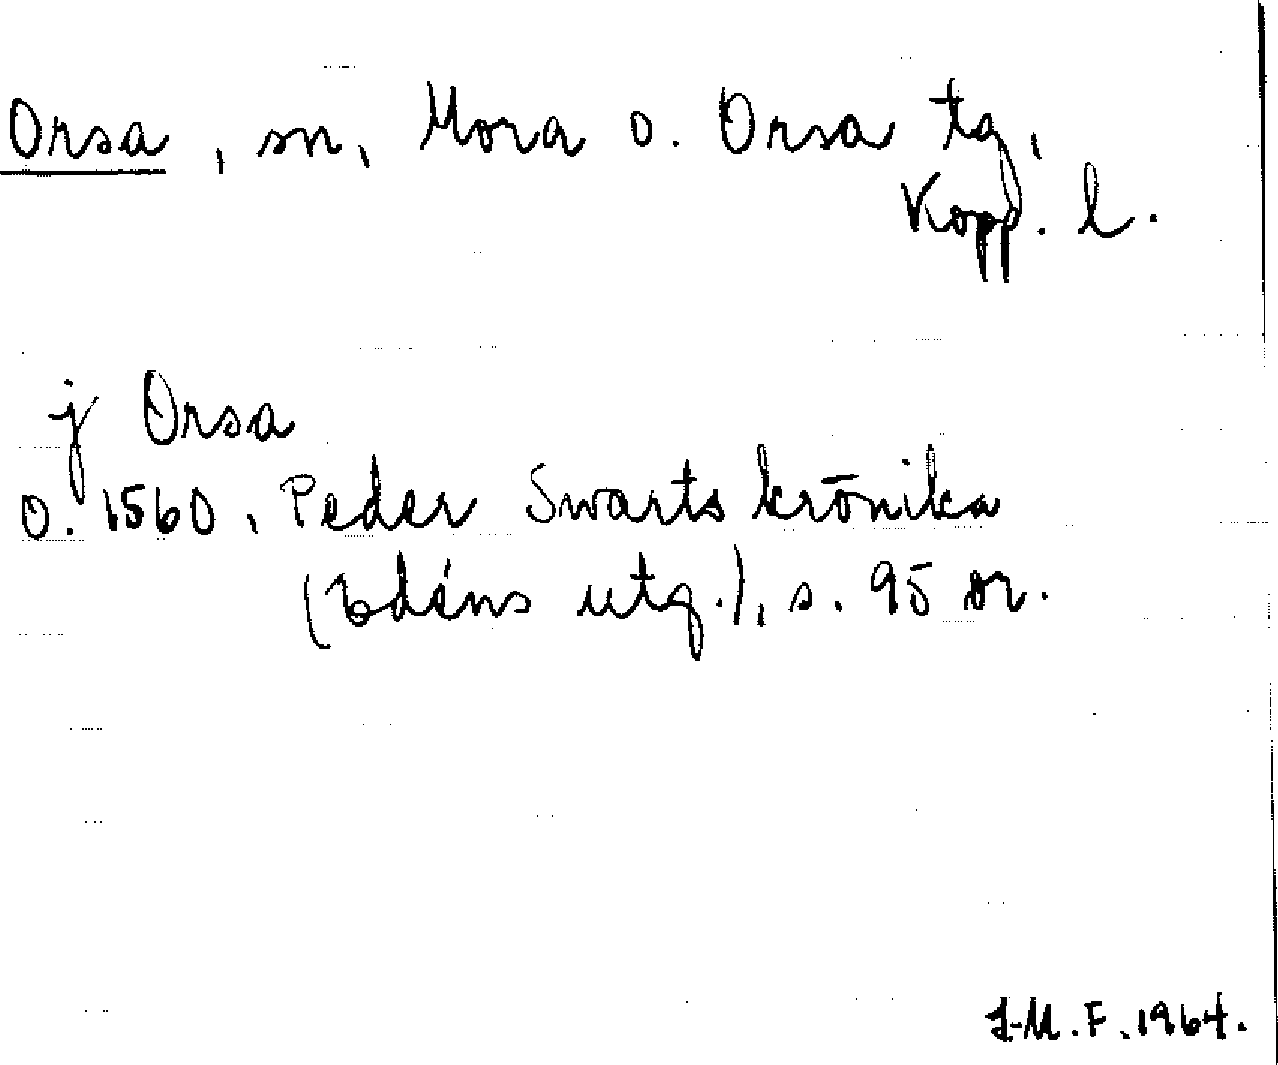 Orsa, sn, Mora o. Orsa tg,
Kopp. l.
j Orsa
o. 1560, Peder Swarts krönika
(Edéns utg.), s. 95 m.
J-M.F. 1964.